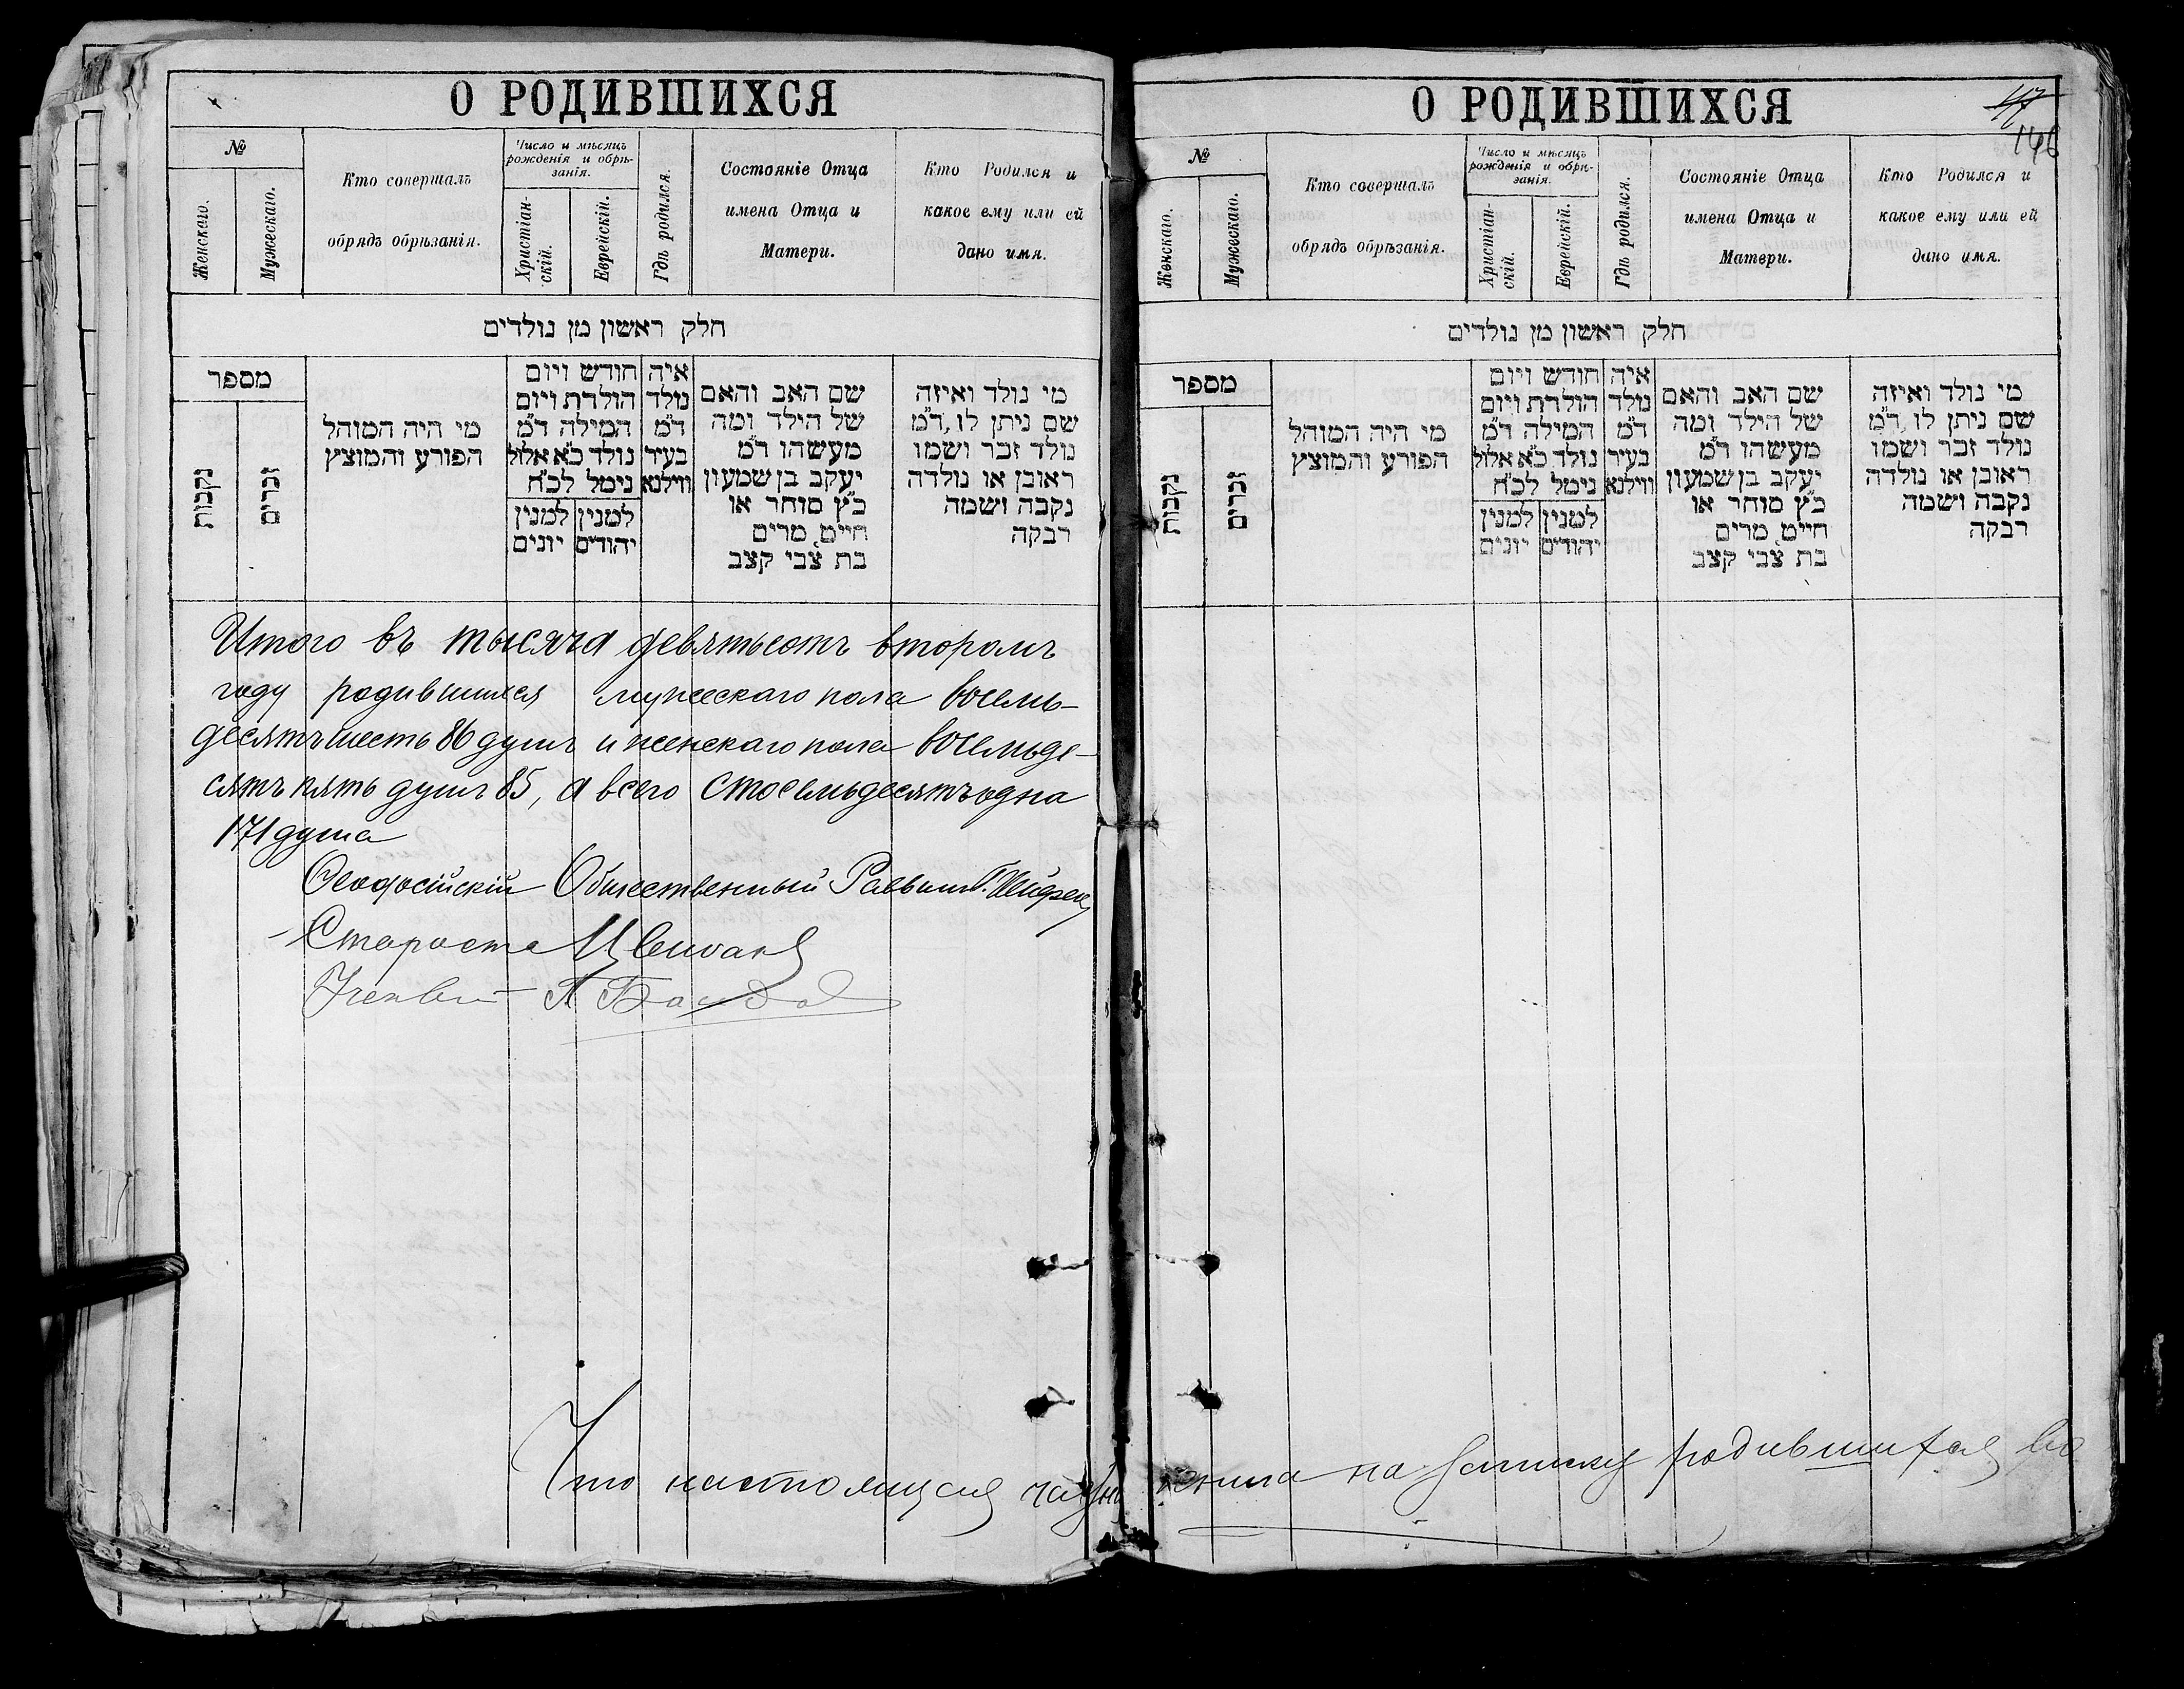 О РОДИВШИХСЯ
№
Женскаго.
Мужескаго.
Кто совершалъ
обрядъ обрѣзанія.
Число и мѣсяцъ
рожденія и обрѣ-
занія.
Христіан-
скій.
Еврейскій.
Гдѣ родился.
Состояніе Отца
имена Отца и
Матери.
Кто Родился и
какое ему или ей
дано имя.
חלק ראשון מן נולדים
מספר
נקבות
זכרים
מי היה המוהל
הפורע והמוצץ
חודש ויום
הולדת ויום
המילה ד"מ
נולד כ"א אלול
נימל לכ"ח
למנין יהודים
למנין יונים
איה
נולד
ד"מ
בעיר
ווילנא
שם האב והאם
של הילד ומה
מעשהו ד"מ
יעקב בן שמעון
כ"ץ סוחר או
חייט, מרים
בת צבי קצב
מי נולד ואיזה
שם ניתן לו, ד"מ
נולד זכר ושמו
ראובן או נולדה
נקבה ושמה
רבקה
Итого въ тысяча девятьсотъ второмъ
году родившихся мужескаго пола восемь-
десятъ шесть 86 душъ и женскаго пола восемьде-
сятъ пять душъ 85, а всего стосемьдесятъ одна
171 душа
Ѳеодосійскій Общественный Раввинъ
Староста
О РОДИВШИХСЯ
146
№
Женскаго.
Мужескаго.
Кто совершалъ
обрядъ обрѣзанія.
Число и мѣсяцъ
рожденія и обрѣ-
занія.
Христіан-
скій.
Еврейскій.
Гдѣ родился.
Состояніе Отца
имена Отца и
Матери.
Кто Родился и
какое ему или ей
дано имя.
חלק ראשון מן נולדים
מספר
נקבות
זכרים
מי היה המוהל
הפורע והמוצץ
חודש ויום
הולדת ויום
המילה ד"מ
נולד כ"א אלול
נימל לכ"ח
למנין יהודים
למנין יונים
איה
נולד
ד"מ
בעיר
ווילנא
שם האב והאם
של הילד ומה
מעשהו ד"מ
יעקב בן שמעון
כ"ץ סוחר או
חייט, מרים
בת צבי קצב
מי נולד ואיזה
שם ניתן לו, ד"מ
נולד זכר ושמו
ראובן או נולדה
נקבה ושמה
רבקה
Что настоящая на записку родившихся во